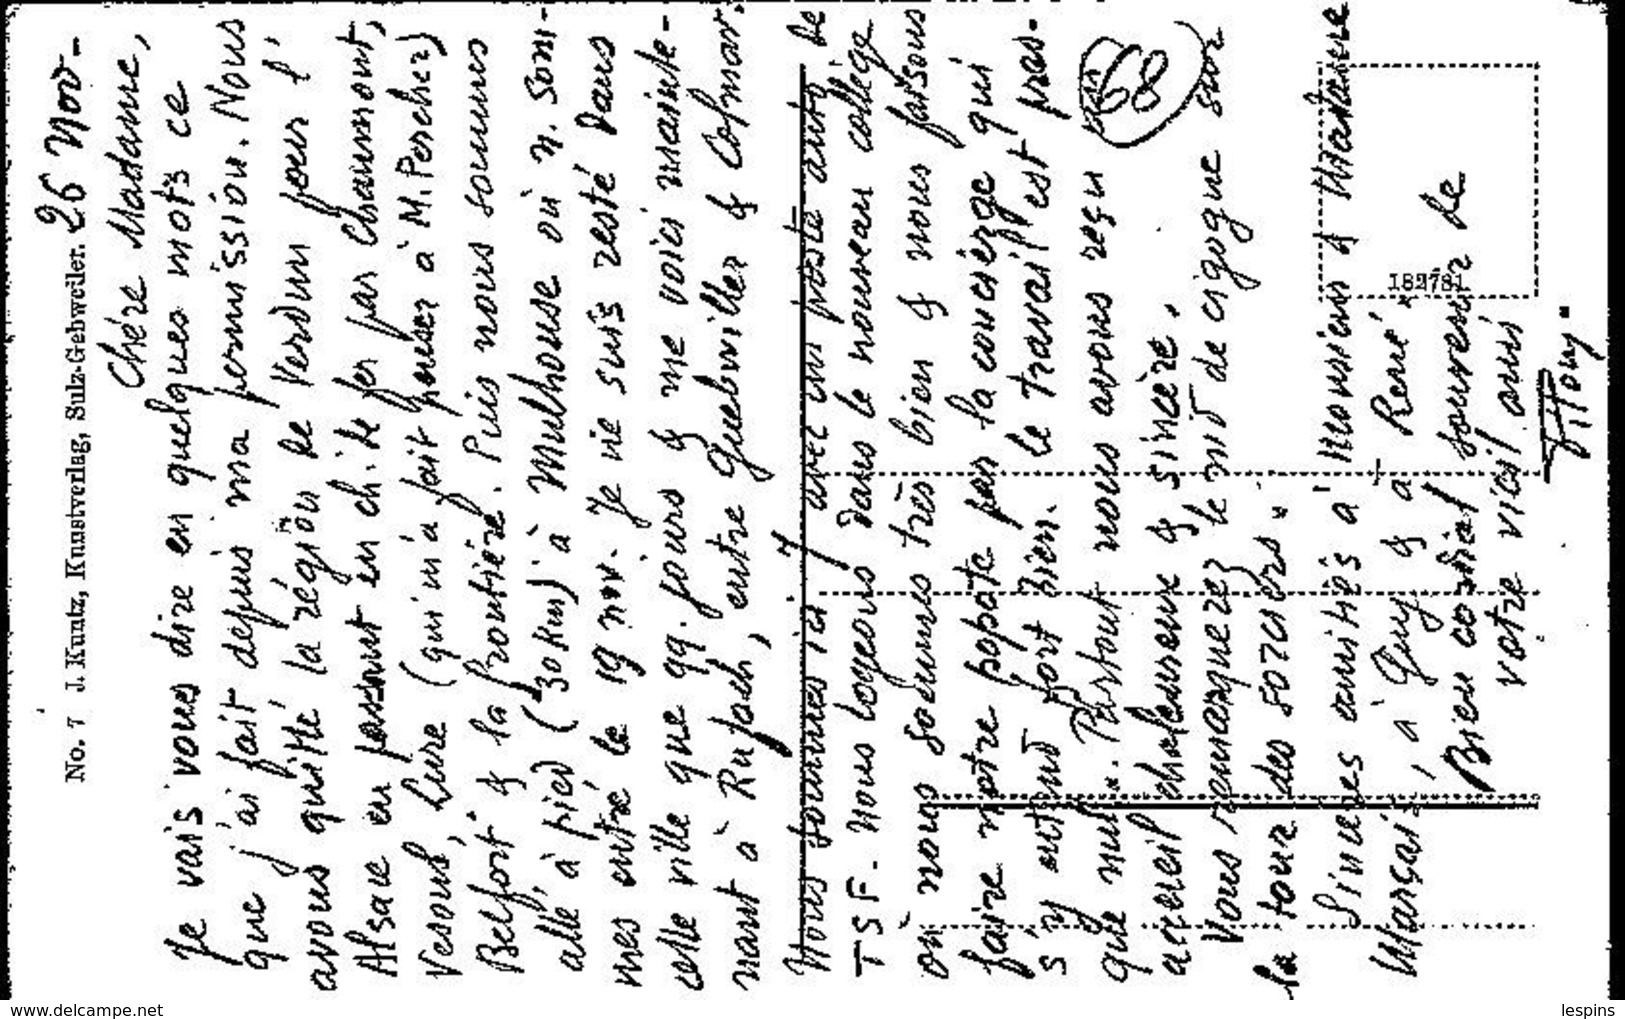 No. 7 J. Kuntz, Kunstverlag, Sulz-Gebweiler.
26 Nov-
Chère Madame,
Je vais vous dire en quelques mots ce
que j'ai fait depuis ma permission. Nous
avons quitté la région de Verdun pour l'
Alsace en passant en ch. de fer par Chaumont,
Vesoul, Lure (qui m'a fait penser à M. Percher)
Belfort & la frontière. Puis nous sommes
allé à pied (30 Km) à Mulhouse où n. som-
mes entré le 19 nov. Je ne suis resté dans
cette ville que qq. jours & me voici mainte-
nant à Rufach, entre Guebwiller & Colmar.
Nous sommes ici 7 avec un poste auto de
TSF. Nous logeons dans le nouveau collège
où nous sommes très bien & nous faisons
faire notre popote par la concierge qui
s'y entend fort bien. Le travail est pres-
que nul. Partout nous avons reçu un
accueil chaleureux & sincère.
68
Vous remarquerez le nid de cigogne sur
la tour des sorciers.
Sincères amitiés à Monsieur & Madame
Marçais, à Guy & à René
Bien cordial souvenir de
votre vieil ami
182781
www.delcampe.net
lespins